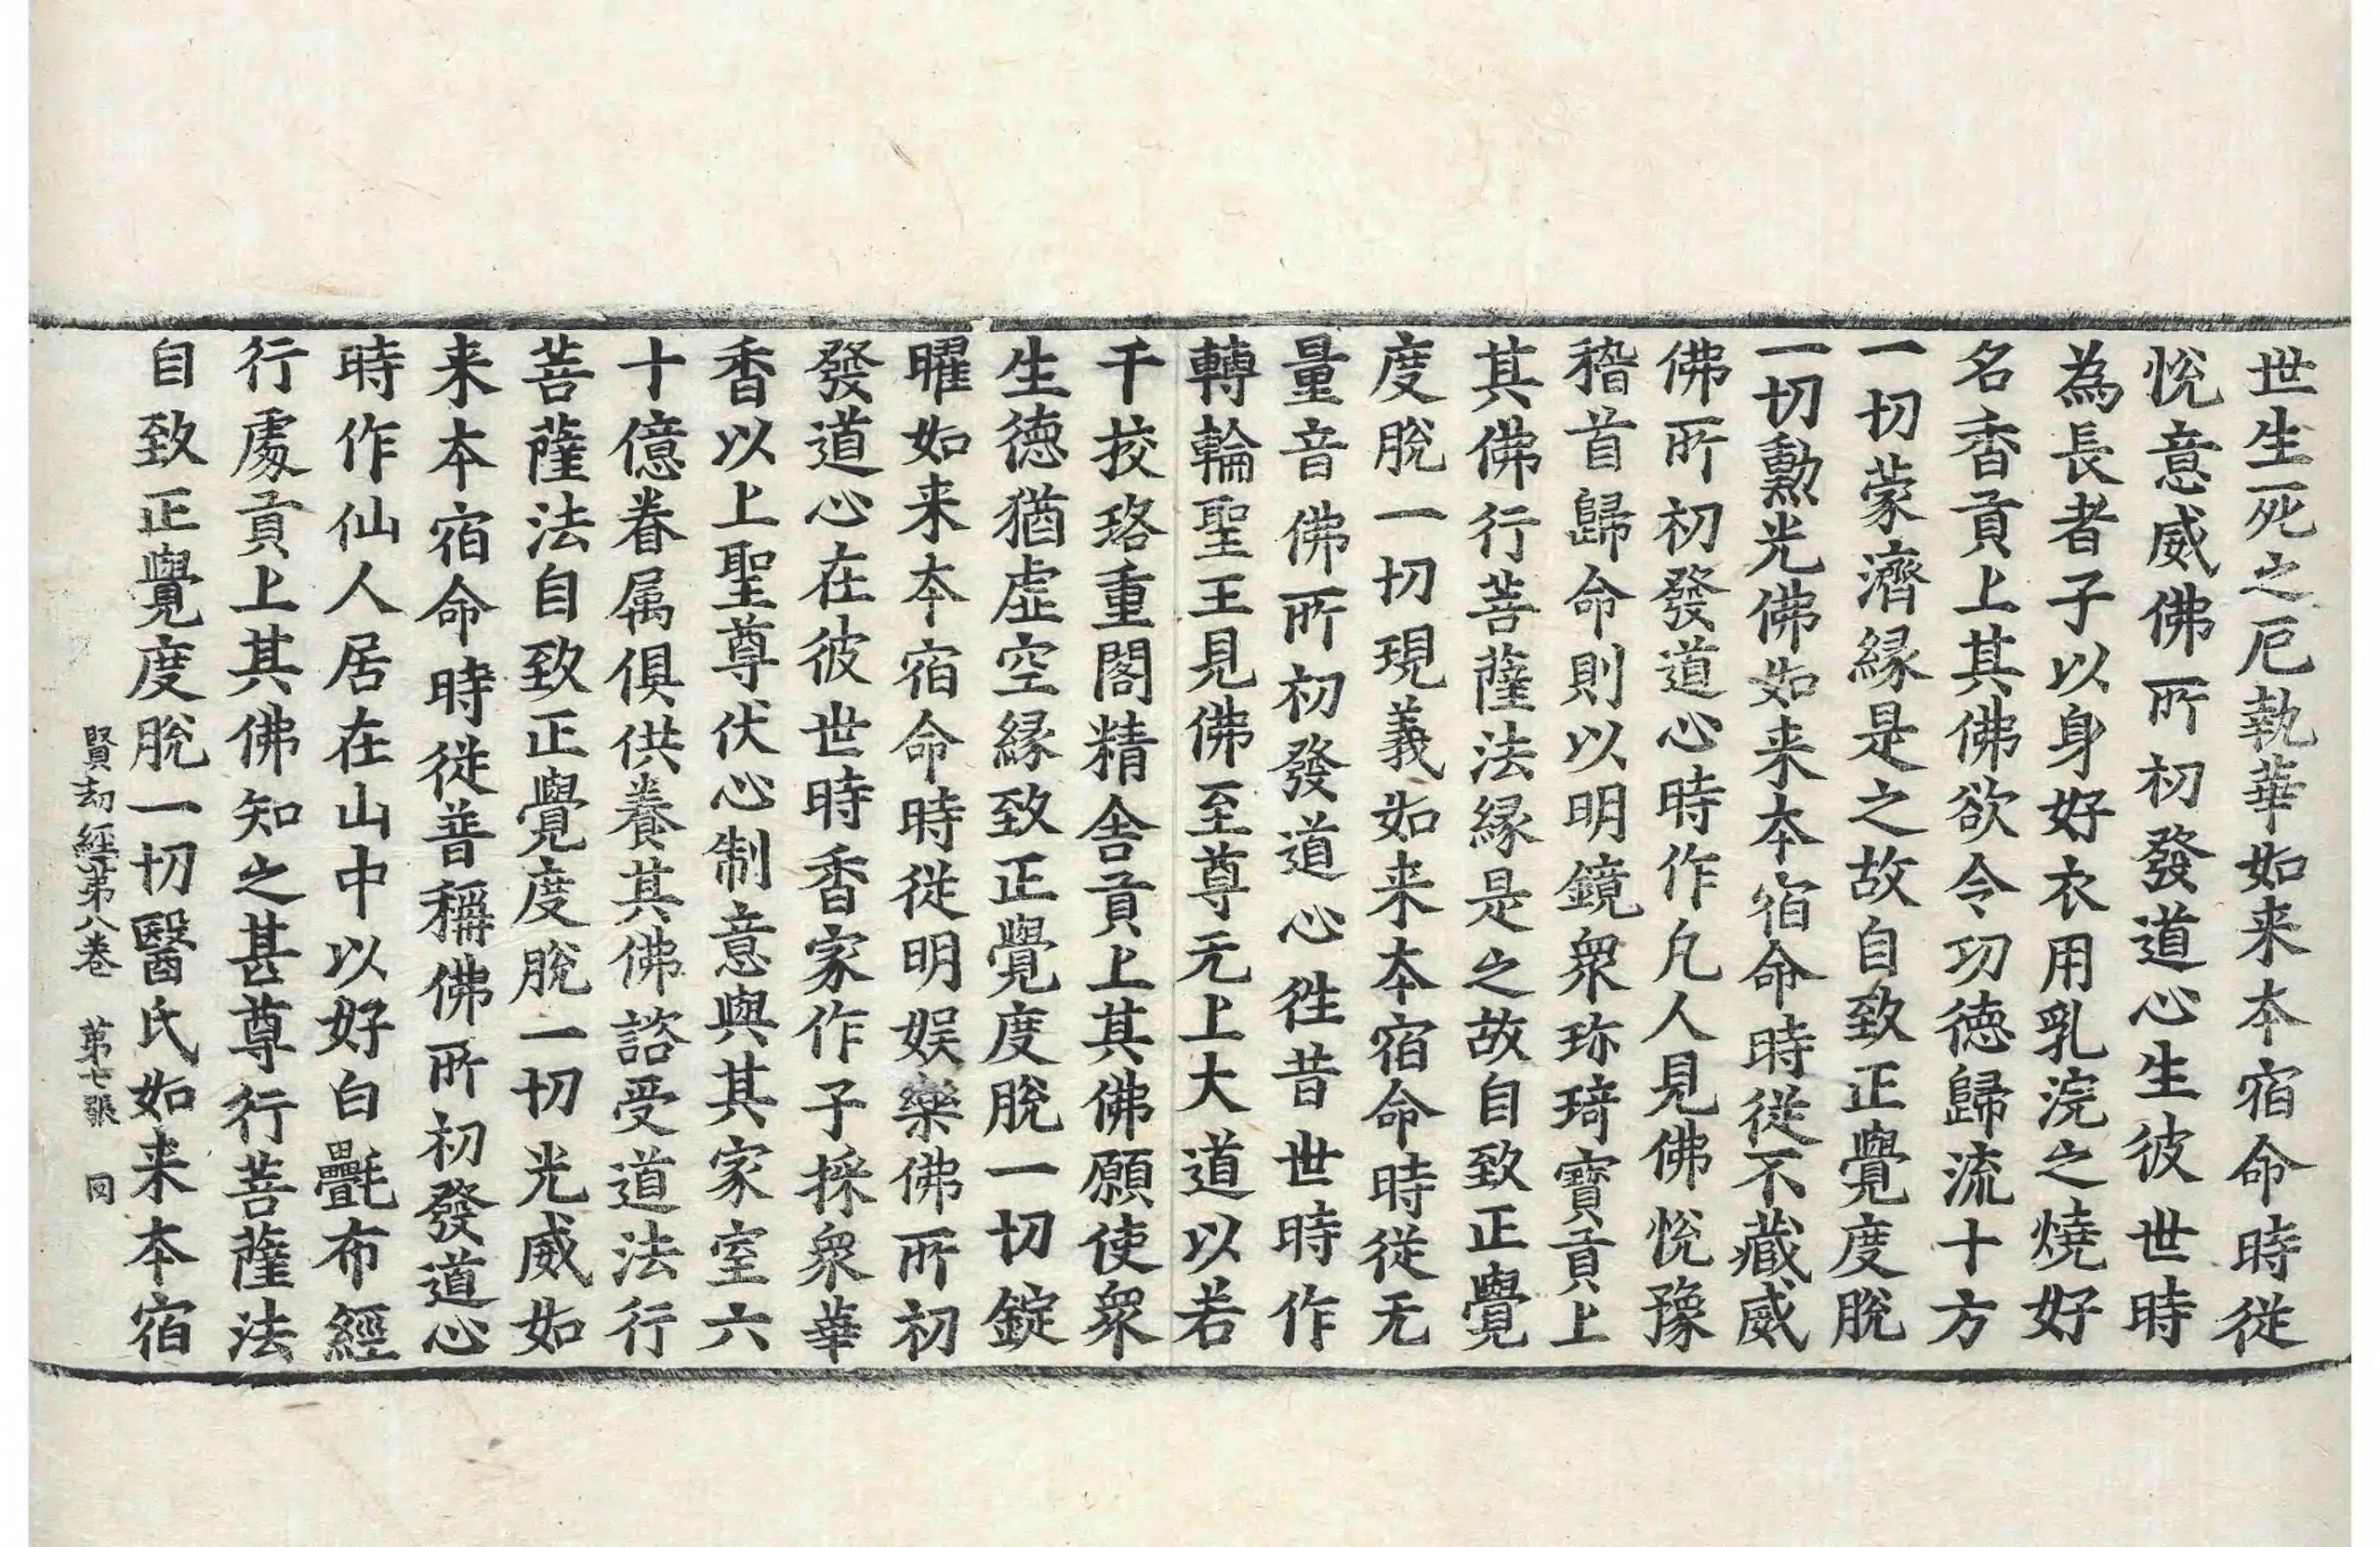 世生死之厄執華如来本宿命時從
悅意威佛所初發道心生彼世時
為長者子以身好衣用乳浣之燒好
名香貢上其佛欲令㓛德歸流十方
一切蒙濟緣是之故自致正覺度脫
一切勲光佛如来本宿命時從不藏威
佛所初發道心時作凡人見佛悅豫
稽首歸命則以明鏡衆珎琦寶貢上
其佛行菩薩法緣是之故自致正覺
度脫一切現義如来本宿命時從无
量音佛所初發道心徃昔世時作
轉輪聖王見佛至尊无上大道以若
千挍珞重閣精舍貢上其佛願使衆
生德猶虛空緣致正覺度脫一切錠
曜如来本宿命時從明娱樂佛所初
發道心在彼世時香家作子採衆華
香以上聖尊伏心制意與其家室六
十億眷属俱供養其佛諮受道法行
菩薩法自致正覺度脫一切光威如
来本宿命時從普稱佛所初發道心
時作仙人居在山中以好白㲲布經
行處貢上其佛知之甚尊行菩薩法
自致正覺度脫一切醫氏如来本宿
賢刼經苐八卷 苐七張 同